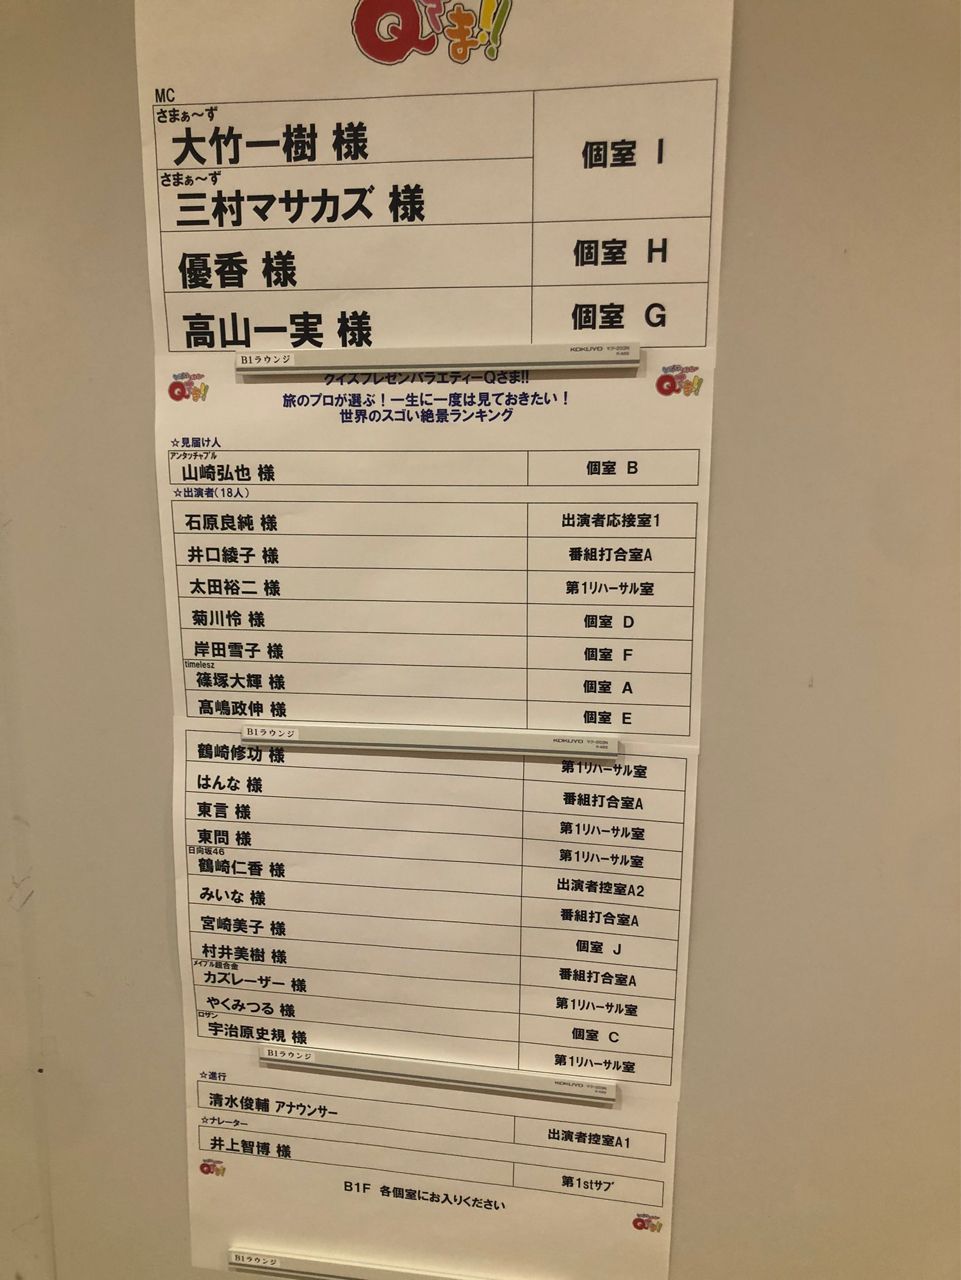 Qさま!!
MC
さまぁ〜ず
大竹一樹 様
個室 I
さまぁ〜ず
三村マサカズ 様
優香 様
個室 H
高山一実 様
個室 G
B1ラウンジ
KOKUYO
クイズプレゼンバラエティーQさま!!
旅のプロが選ぶ!一生に一度は見ておきたい!
世界のスゴい絶景ランキング
☆見届け人
アンタッチャブル
山崎弘也 様
個室 B
☆出演者(18人)
石原良純 様
出演者応接室1
井口綾子 様
番組打合室A
太田裕二 様
第1リハーサル室
菊川怜 様
個室 D
岸田雪子 様
個室 F
timelesz
篠塚大輝 様
個室 A
髙嶋政伸 様
個室 E
B1ラウンジ
KOKUYO
鶴崎修功 様
第1リハーサル室
はんな 様
番組打合室A
東言 様
第1リハーサル室
東問 様
第1リハーサル室
日向坂46
鶴崎仁香 様
出演者控室A2
みいな 様
番組打合室A
宮崎美子 様
個室 J
村井美樹 様
番組打合室A
メイプル超合金
カズレーザー 様
第1リハーサル室
やくみつる 様
個室 C
ロザン
宇治原史規 様
第1リハーサル室
B1ラウンジ
KOKUYO
☆進行
清水俊輔 アナウンサー
出演者控室A1
☆ナレーター
井上智博 様
第1stサブ
Qさま!!
B1F 各個室にお入りください
Qさま!!
B1ラウンジ